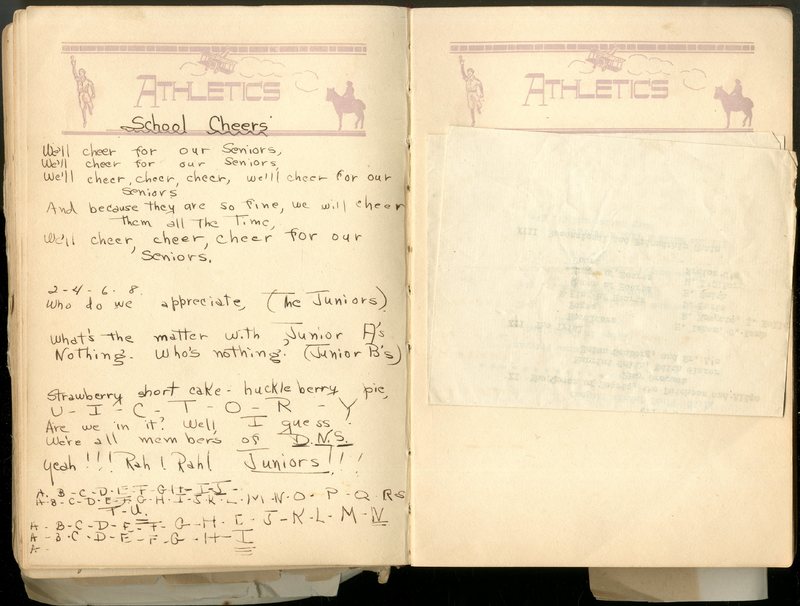 ATHLETICS
School Cheers
We'll cheer for our Seniors,
We'll cheer for our Seniors,
We'll cheer, cheer, cheer, we'll cheer for our
Seniors
And because they are so fine, we will cheer
them all the time,
We'll cheer, cheer, cheer for our
Seniors.
2-4-6-8.
Who do we appreciate, (The Juniors)
What's the matter with Junior A's
Nothing. Who's nothing. (Junior B's)
Strawberry short cake- huckleberry pie,
U-I-C-T-O-R-Y
Are we in it? Well I guess
We're all members of D.N.S.
Yeah!!! Rah! Rah! Juniors!!!
A-B-C-D-E-F-G-H-I-J-
A-B-C-D-E-F-G-H-I-J-K-L-M-N-O-P-Q-R-S
T-U.
A-B-C-D-E-F-G-H-I-J-K-L-M-N
A-B-C-D-E-F-G-H-I
A-
ATHLETICS